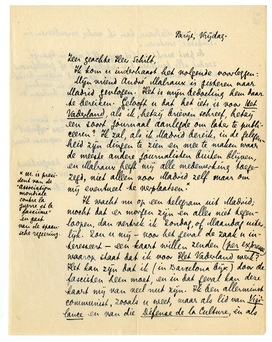 Parijs, Vrijdag.
Zeer geachte Heer Schilt,
Ik kom u inderhaast het volgende voorleggen.
Mijn vriend André Malraux is gisteren naar
Madrid gevlogen. Het is mijn bedoeling hem daar
te bereiken. Gelooft u dat het iets is voor Het
Vaderland, als ik hetzij brieven schreef, hetzij
een soort journaal trachtte om later te publi-
ceeren? Ik zal, als ik Madrid bereik, in de ge-
legenheid zijn dingen te zien en mee te maken waar
de meeste andere journalisten buiten blijven,
en Malraux heeft mij alle medewerking toege-
zegd, niet alleen voor Madrid zelf maar om
mij eventueel te verplaatsen*
Ik wacht nu op een telegram uit Madrid,
mocht dat er morgen zijn en alles met
loopen, dan vertrek ik Zondag, of Maandag uit-
terlijk. Zou u mij – voor het geval de zaak u in-
teresseert – een kaart willen zenden (per expresse)
waarop staat dat ik voor Het Vaderland werk?
Het kan zijn dat ik (in Barcelona bijv.) door de
fascisten heen moet, en in dat geval kan deze
kaart mij veel nut zijn. Ik ben allerminst
communist, zooals u weet, maar als lid van Vigi-
lance en van die Défense de la Culture, en als
* M. is presi-
dent van de
"association
mondiale
contre la
guerre et le
fascisme"
en gast
van de spaan-
sche regeering.